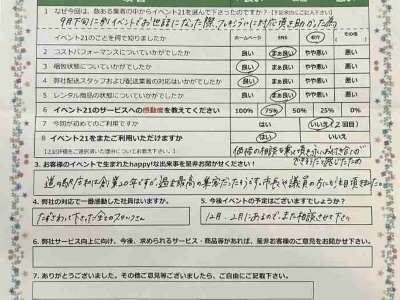 なぜ今回は、数ある業者の中からイベント21を選んで下さったのですか?
9月下旬に別イベントでお世話になった際、フレキシブルに対応頂き助かった為
項目
イベント21のことを何で知りましたか ホームページ SNS 紹介 その他
2 コストパフォーマンスについていかがでしたか 良い まぁ良い やや悪い 悪い
3 梱包状態についていかがでしたか 良い まぁ良い やや悪い 悪い
4 弊社配送スタッフおよび配送業者の対応はいかがでしたか 良い まぁ良い やや悪い 悪い
5 レンタル商品の状態についていかがでしたか 良い まぁ良い やや悪い 悪い
6 イベント21のサービスへの感動度を教えてください 100% 75% 50% 25% 0%
7 今回が初めてのご利用ですか はい いいえ( 2回目)
8 イベント21をまたご利用いただけますか はい いいえ
価格の相談を
3. お客様のイベントで生まれたhappy!な出来事を是非お聞かせください!
道の駅 は創業20年ですが、過去最高の集客だったそうです。市長や議員の方にも
4. 弊社の対応で一番感動した社員はいますか?
たずさわって下さった全てのスタッフさん
5. 今後イベントの予定はございますでしょうか?
12月、2月にあるので、また相談させて下さい
6. 弊社サービス向上に向け、今後、求められるサービス・商品等があれば、是非お客様のご意見をお聞かせ下さい。
7. ありがとうございました。その他ご意見等ございましたら、ご自由にご記載下さい。